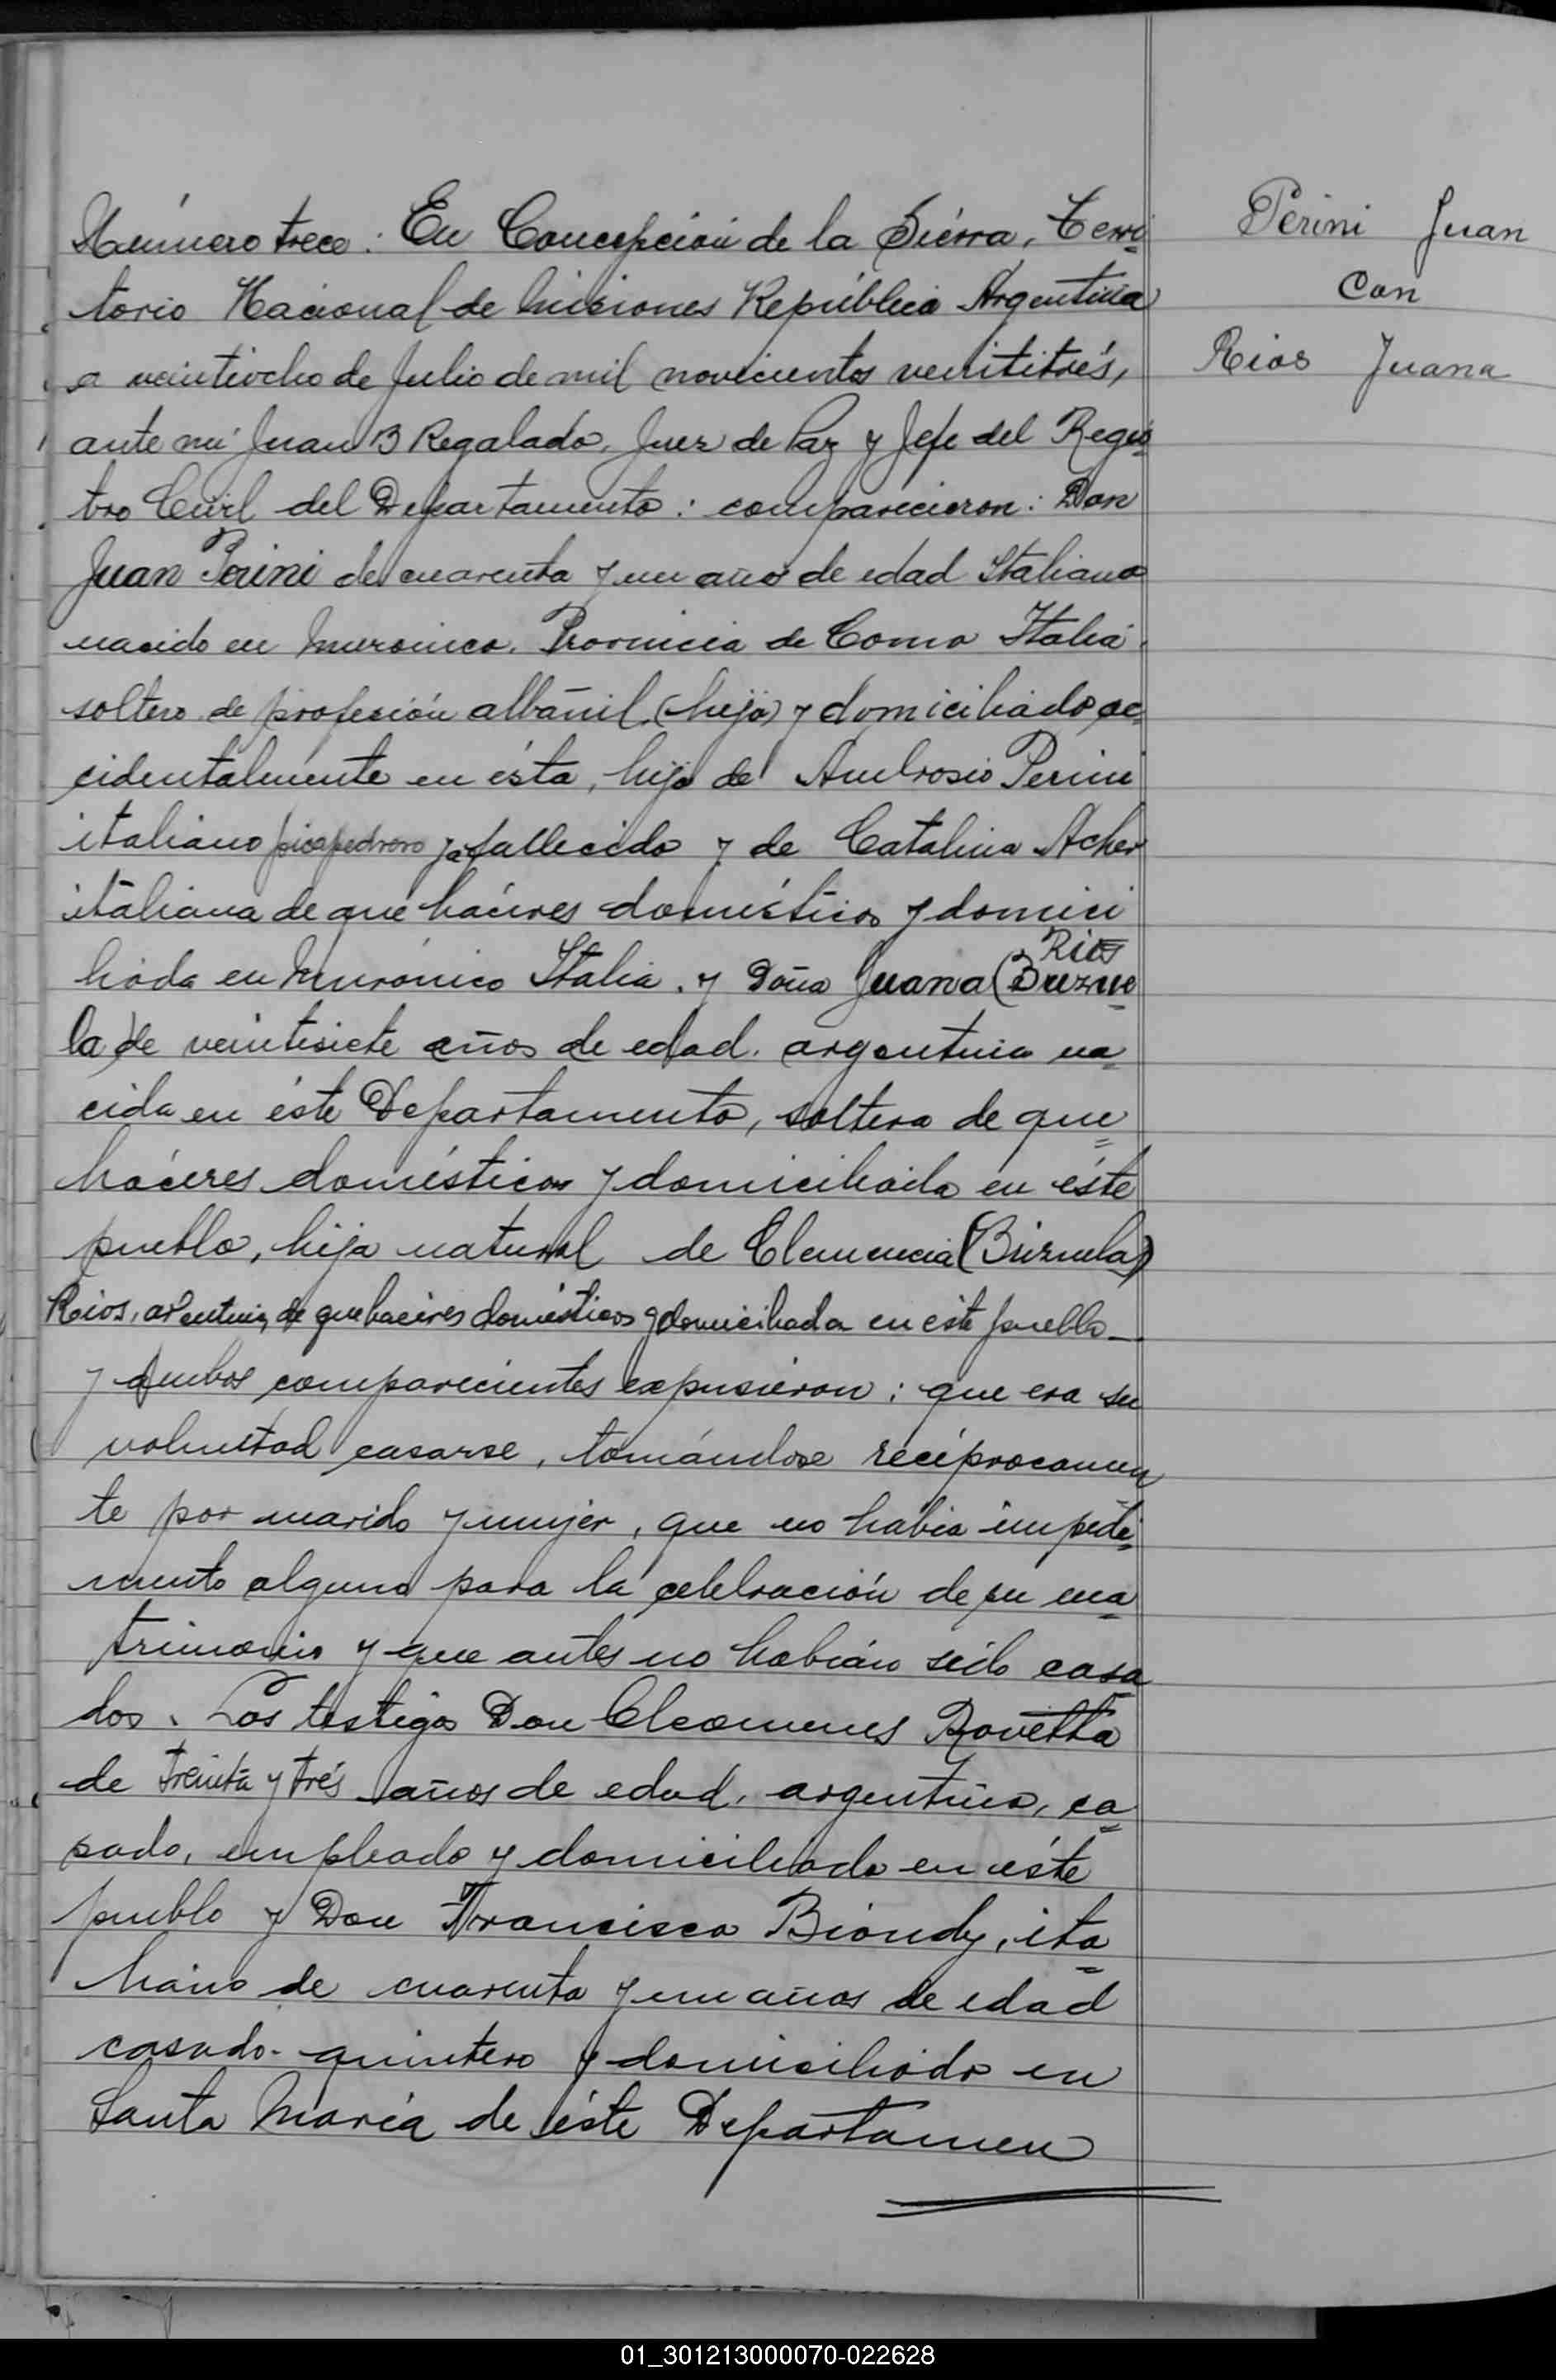 Número trece: En Concepción de la Siérra, Terri
torio Nacional de Misiones República Argentina
a veintiocho de Julio de mil novicientos veintitrés,
ante mi Juan B Regalado, Juez de Paz y Jefe del Regis
tro Civil del Departamento: comparecieron: Don
Juan Perini de cuarenta y un años de edad Italiano
nacido en Muronico. Provincia de Como Italia.
soltero de profesión albañil (hijo) y domiciliado ac
cidentalmente en ésta, hijo de Ambrosio Perini
italiano picapedrero ya fallecido y de Catalina Acher
italiana de que haceres domésticos y domici
liada en Murónico Italia. y Doña Juana (Bruzue
Rios
la) de veintisiete años de edad. argentina na
cida en éste Departamento, soltera de que
háceres domésticos y domiciliada en éste
pueblo, hija natural de Clemencia (Brizuela)
Rios, argentina, de quehaceres domésticos y domiciliada en este pueblo
y ambos comparecientes expusieron: que era su
voluntad casarse, tomándose recíprocamen
te por marido y mujer, que no había impedi
mento alguno para la celebración de su ma
trimonio y que antes no habían sido casa
dos. Los testigos Don Cleomenes Rovetta
de treinta y trés años de edad, argentino, ca
sado, empleado y domiciliado en éste
pueblo y Don Francisco Biondy, ita
liano de cuarenta y un años de edad
casado quintero y domiciliado en
Santa María de éste Departamen
Perini Juan
Con
Rios Juana
01_301213000070-022628